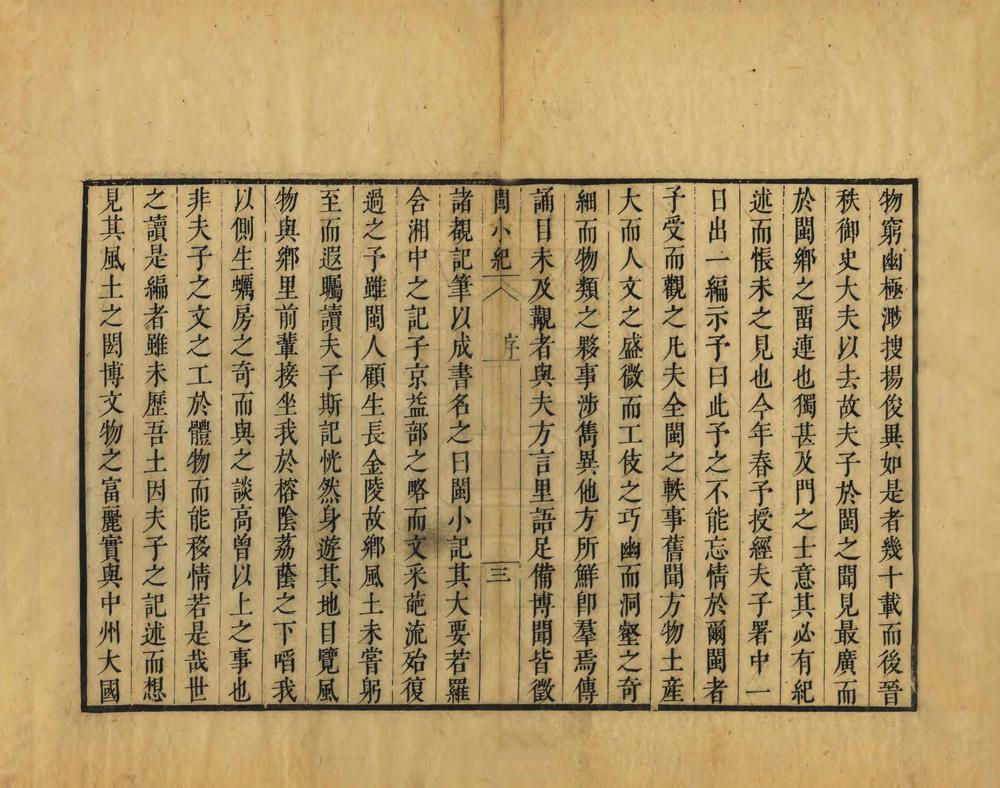 物窮幽極渺搜揚俊異如是者幾十載而後晉
秩御史大夫以去故夫子於閩之聞見最廣而
於閩鄉之畱連也獨甚及門之士意其必有紀
述而悵未之見也今年春予授經夫子署中一
日出一編示予曰此予之不能忘情於爾閩者
子受而觀之凡夫全閩之軼事舊聞方物土産
大而人文之盛微而工伎之巧幽而洞壑之奇
細而物類之夥事涉雋異他方所鮮卽羣焉傳
誦目未及覩者與夫方言里語足備博聞皆徵
閩小紀 序 三
諸覩記筆以成書名之曰閩小記其大要若羅
含湘中之記子京益部之略而文采葩流殆復
過之予雖閩人顧生長金陵故鄉風土未嘗躬
至而遐矚讀夫子斯記恍然身遊其地目覽風
物與鄉里前輩接坐我於榕陰荔蔭之下啗我
以側生蠣房之奇而與之談高曾以上之事也
非夫子之文之工於體物而能移情若是哉世
之讀是編者雖未歷吾土因夫子之記述而想
見其風土之閎博文物之富麗實與中州大國